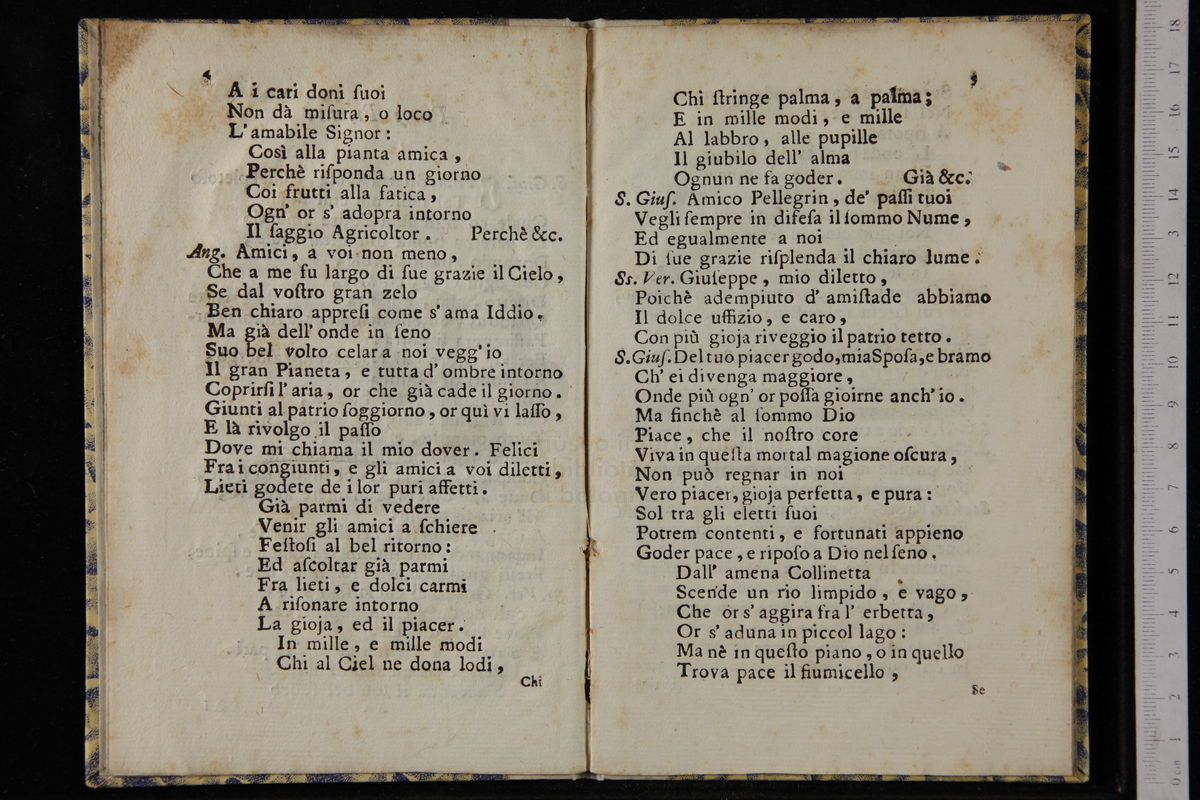 4
A i cari doni ſuoi
Non dà miſura, o loco
L'amabile Signor:
Così alla pianta amica,
Perchè riſponda un giorno
Coi frutti alla fatica,
Ogn' or s' adopra intorno
Il ſaggio Agricoltor. Perchè &c.
Ang. Amici, a voi non meno,
Che a me fu largo di ſue grazie il Cielo,
Se dal voſtro gran zelo
Ben chiaro appreſi come s' ama Iddio.
Ma già dell' onde in ſeno
Suo bel volto celar a noi vegg' io
Il gran Pianeta, e tutta d' ombre intorno
Coprirſi l' aria, or che già cade il giorno.
Giunti al patrio ſoggiorno, or quì vi laſſo,
E là rivolgo il paſſo
Dove mi chiama il mio dover. Felici
Fra i congiunti, e gli amici a voi diletti,
Lieti godete de i lor puri affetti.
Già parmi di vedere
Venir gli amici a ſchiere
Feſtoſi al bel ritorno:
Ed aſcoltar già parmi
Fra lieti, e dolci carmi
A riſonare intorno
La gioja, ed il piacer.
In mille, e mille modi
Chi al Ciel ne dona lodi,
Chi
Chi ſtringe palma, a palma;
E in mille modi, e mille
Al labbro, alle pupille
Il giubilo dell' alma
Ognun ne fa goder. Già &c.
S. Giuſ. Amico Pellegrin, de' paſſi tuoi
Vegli ſempre in difeſa il ſommo Nume,
Ed egualmente a noi
Di ſue grazie riſplenda il chiaro lume.
Ss. Ver. Giuſeppe, mio diletto,
Poichè adempiuto d' amiſtade abbiamo
Il dolce uffizio, e caro,
Con più gioja riveggio il patrio tetto.
S. Giuſ. Del tuo piacer godo, mia Spoſa, e bramo
Ch' ei divenga maggiore,
Onde più ogn' or poſſa gioirne anch' io.
Ma finchè al ſommo Dio
Piace, che il noſtro core
Viva in queſta mortal magione oſcura,
Non può regnar in noi
Vero piacer, gioja perfetta, e pura:
Sol tra gli eletti ſuoi
Potrem contenti, e fortunati appieno
Goder pace, e ripoſo a Dio nel ſeno.
Dall' amena Collinetta
Scende un rio limpido, e vago,
Che or s' aggira fra l' erbetta,
Or s' aduna in piccol lago:
Ma nè in queſto piano, o in quello
Trova pace il fiumicello,
Se
0 cm 1 2 3 4 5 6 7 8 9 10 11 12 13 14 15 16 17 18